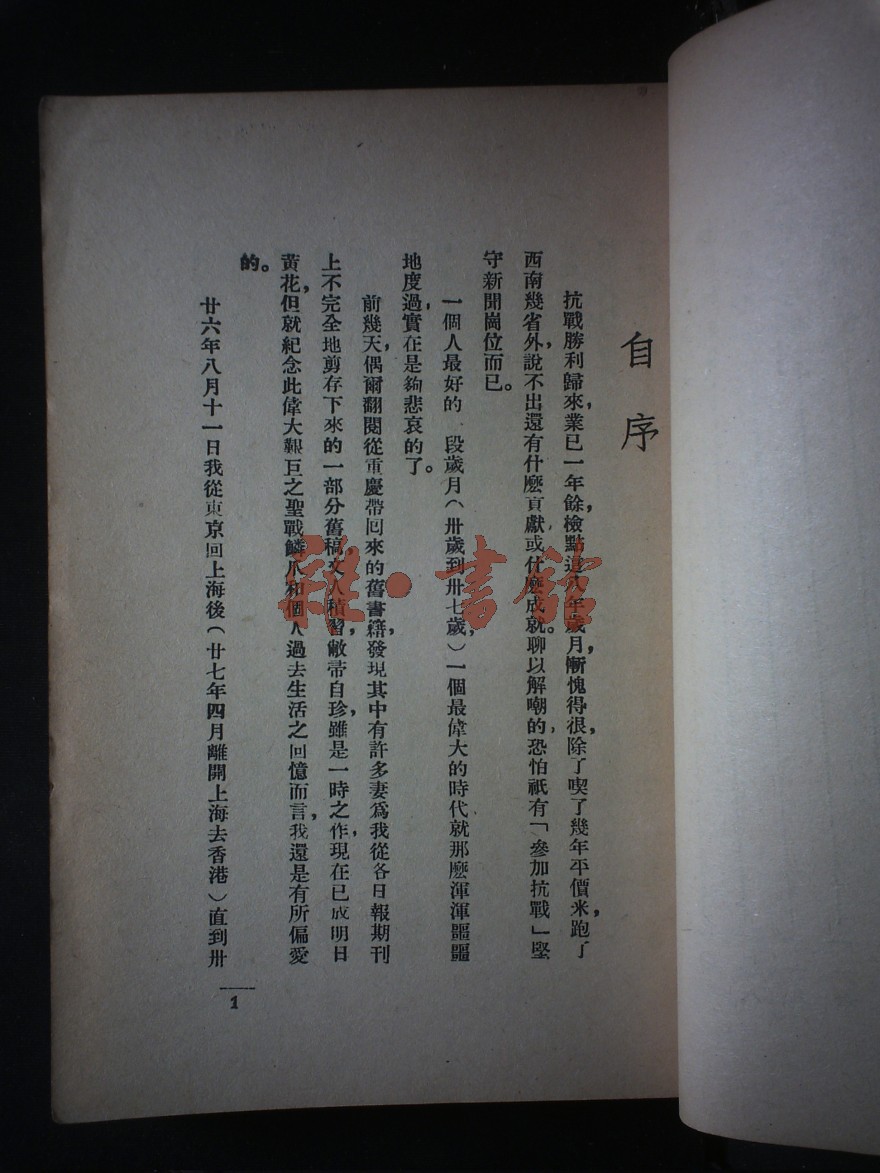 自序
抗戰勝利歸來，業已一年餘，檢點這八年歲月，慚愧得很，除了喫了幾年平價米，跑了
西南幾省外，說不出還有什麼貢獻或什麼成就。聊以解嘲的，恐怕祇有「參加抗戰」堅
守新聞崗位而已。
一個人最好的一段歲月（卅歲到卅七歲），一個最偉大的時代就那麼渾渾噩噩
地度過，實在是夠悲哀的了。
前幾天，偶爾翻閱從重慶帶回來的舊書籍，發現其中有許多妻爲我從各日報期刊
上不完全地剪存下來的一部分舊稿。文人積習，敝帚自珍，雖是一時之作，現在已成明日
黃花，但就紀念此偉大艱巨之聖戰鱗爪和個人過去生活之回憶而言，我還是有所偏愛
的。
廿六年八月十一日我從東京回上海後（廿七年四月離開上海去香港）直到卅
1
雜·書館